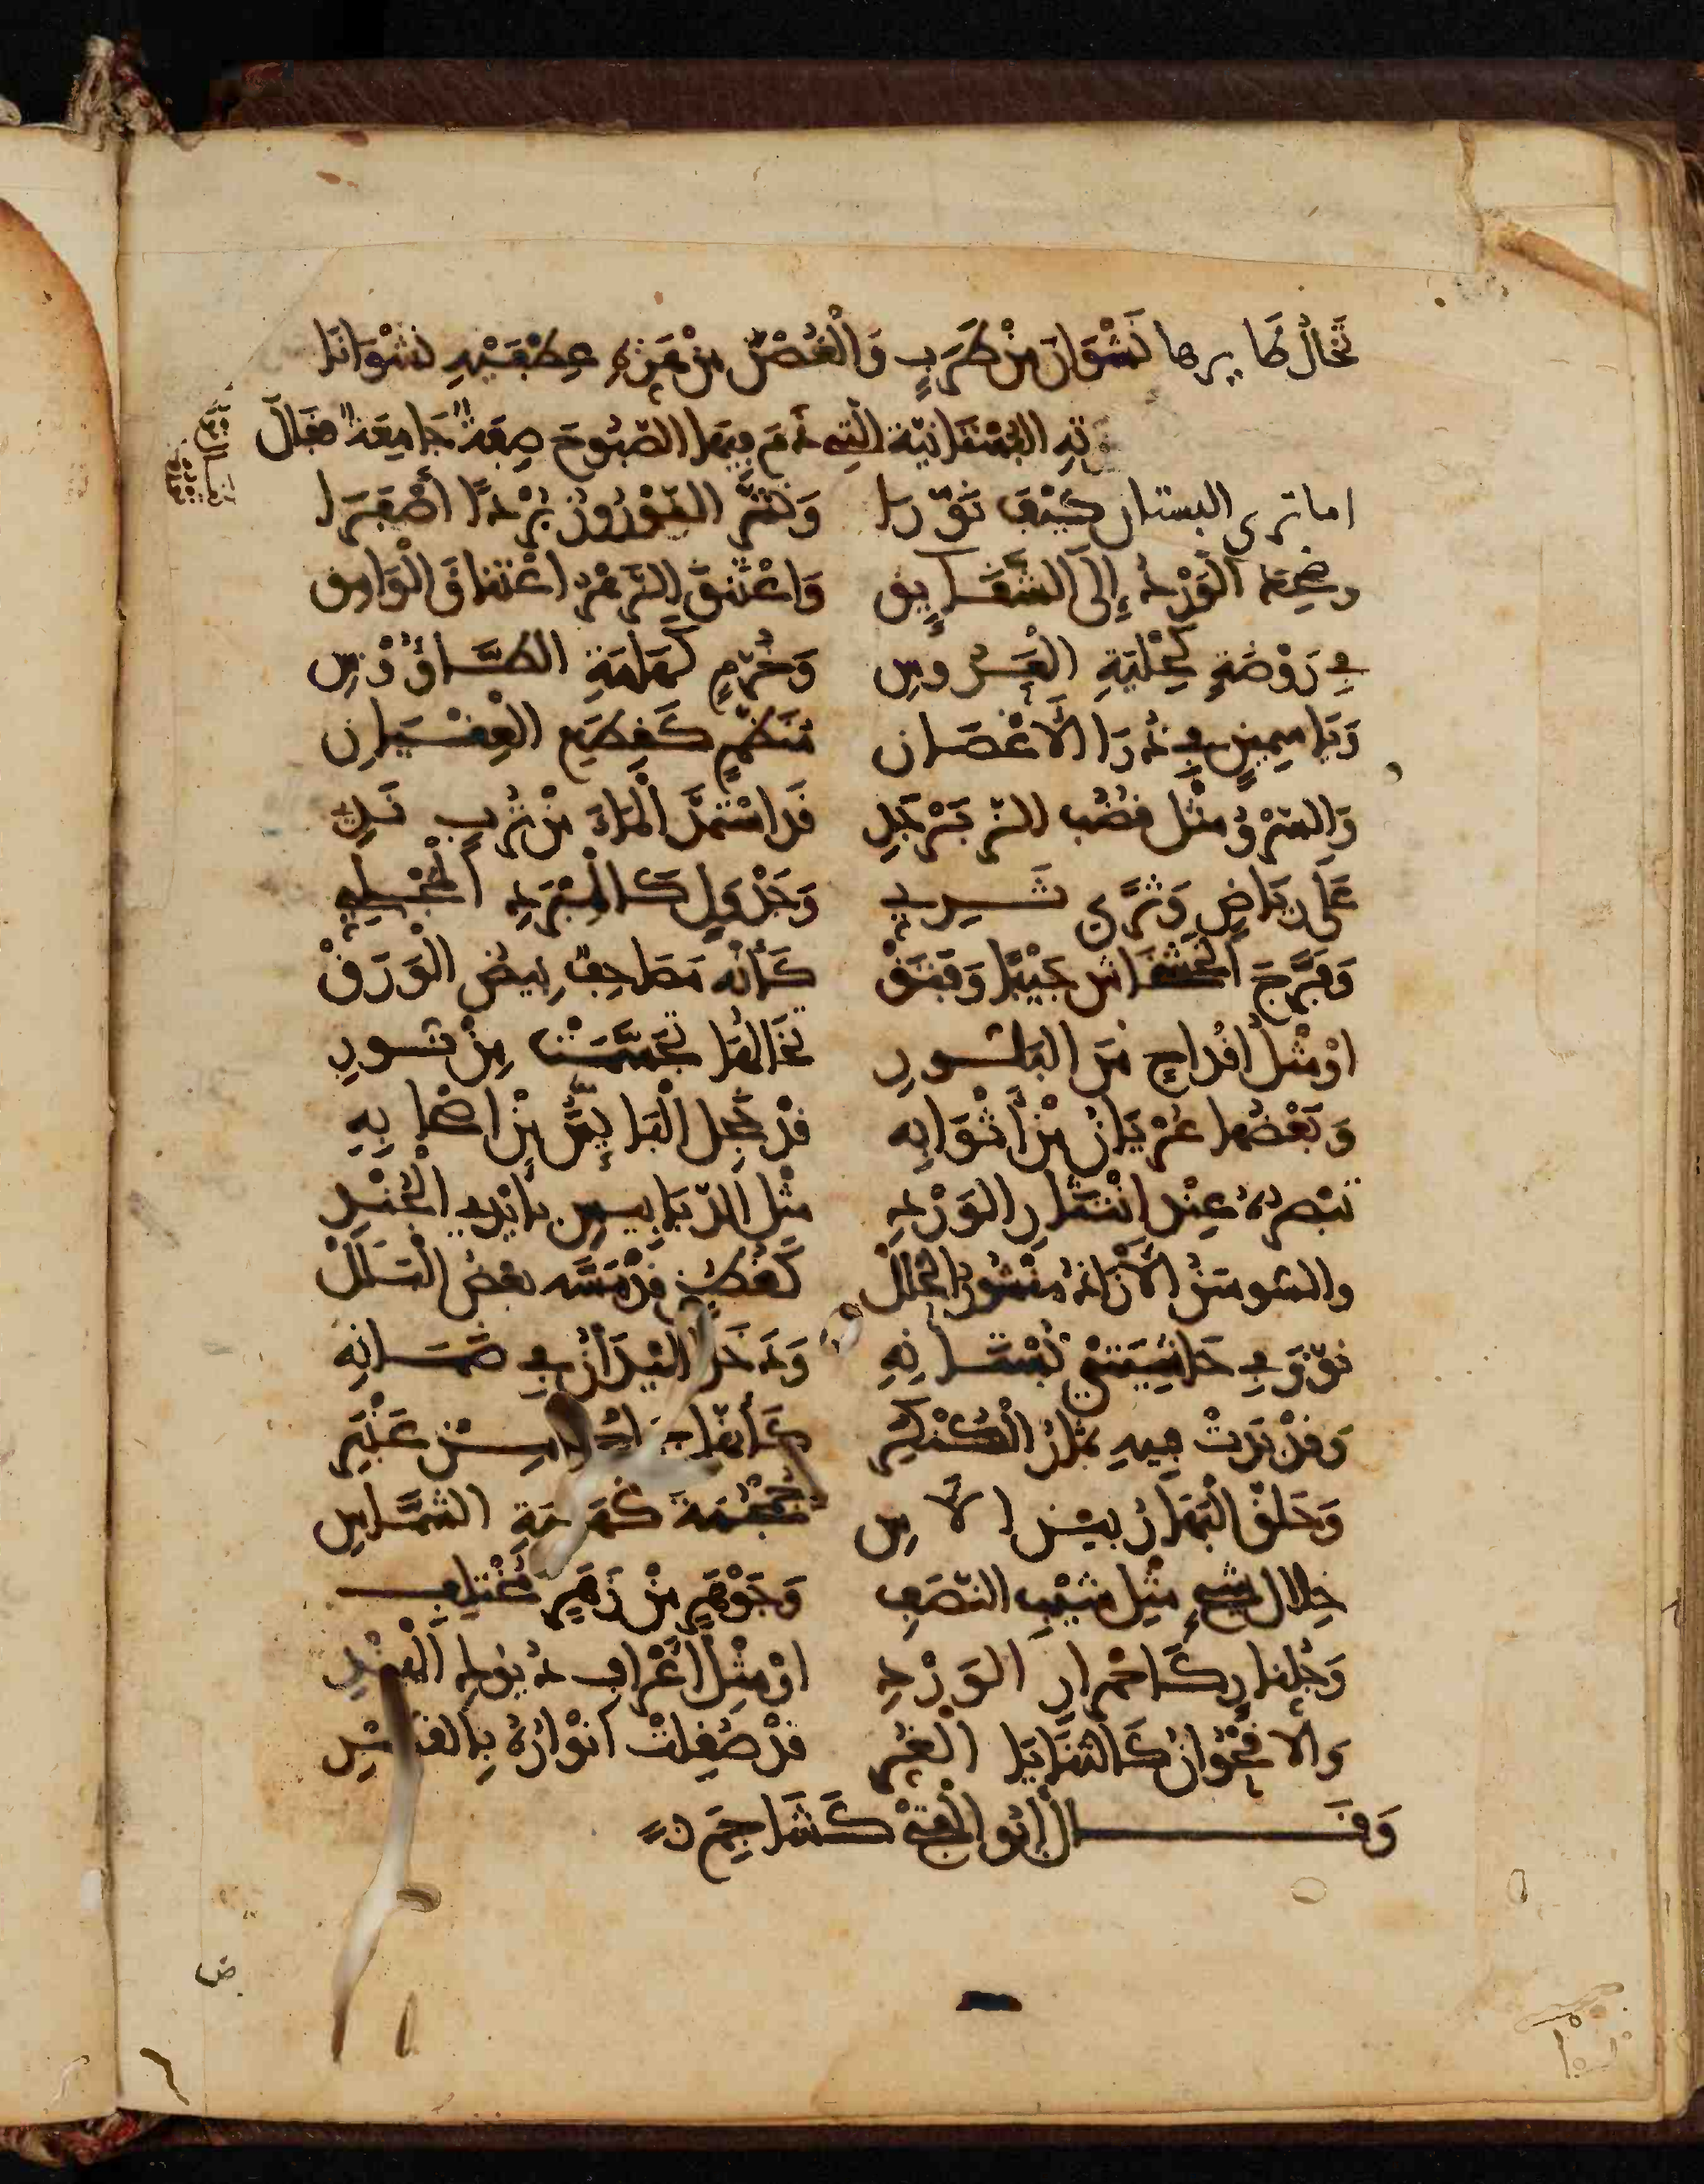 تَخَالُ طَايرها نَشْوَانَ مِنْ طَرَبٍ وَالْغُصْنَ مِنْ هَزِّهِ عِطْفَيْهِ نَشْوَانَا
البُسْتَانِيّة الّتِي ذَمَّ فِيهَا الصَّبُوحَ صِفَةً جَامِعَةً فقَالَ
اما ترى البستان كَيْفَ نَوَّرَا وَنَشَّرَ المَنْثُورُ بُرْدًا أَصْفَرَا
وضَحِكَ الْوَرْدُ إِلَى الشَّقَايِقِ وَاعْتَنَقَ الزَّهْرُ اعْتِنَاقَ الْوَامِقِ
فِي رَوْضَةٍ كَحِلْيَةِ الْعَرُوسِ وَخُرَّمٍ كَهَامَةِ الطَّاؤُوسِ
وَيَاسِمِينٍ فِي ذُرَا الْأَغْصَانِ مُنَظَّمٍ كَقِطَعِ الْعِقْيَانِ
وَالسَّرْوُ مِثْلَ قُضُبِ الزَّبَرْجَدِ قَدِ اسْتَمَدَّ الْمَاءَ مِنْ تُرْبٍ نَدِي
عَلَى رِيَاضٍ وَثَرًى ثَرِيِّ وَجَدْوَلٍ كَالْمِبْرَدِ الْمَجْلِيِّ
وَفَرَّجَ الْخَشْخَاشُ جَيْبًا وَفَتَقْ كَأَنَّه مَصَاحِفٌ بِيضُ الْوَرَقْ
اوْ مِثْلُ اقْدَاحٍ مِنَ البَلُّورِ تَخَالُهَا تَجَسَّمَتْ مِنْ نُورِ
وَبَعْضُهَا عُرْيَانُ مِنْ أَثْوَابِهِ قَدْ خَجِلَ الْيَائِسُ مِنْ اصْحَابِهِ
تُبْصِرُهُ عِنْدَ انْتِثَارِ الوَرْدِ مِثْلَ الدَّبَابِيسِ بِأَيْدِي الْجُنْدِ
والسَّوْسَنُ الْأَزَاذُ مَنْشُورُ الْحُلَلْ كَقُطُنٍ قَدْ مَسَّه بَعْضُ الْبَلَلْ
نَوَّرَ فِي حَاشِيَتَيْ بُسْتَانِهِ وَدَخَلَ الْمَيْدَانَ فِي ضَمَانِهِ
وَقَدْ بَدَتْ فِيهِ ثِمَارُ الْكَنْكَرِ كَأَنَّهَا عَنْبَرِ
وَحَلَّقَ الْبَهَارُ بَيْنَ الْآسِ جُمْجُمَةً كَهَامَةِ الشَّمَّاسِ
خِلَالَ شِيحٍ مِثْلِ شَيْبِ النَّصَفِ وَجَوْهَرٍ مِنْ زَهَرٍ مُخْتَلِفِ
وَجُلَّنَارٍ كَاحْمِرَارِ الْوَرْدِ اوْ مِثْلِ أَعْرَافِ دُيُوكِ الْهِنْدِ
وَالْاقْحُوَانُ كَالثَّنَايَا الْغُرِّ قَدْ صُقِلَتْ انْوَارُهُ بِالقَطْرِ
وَقَالَ ابُو الْفَتْحِ كَشَاجِمَ